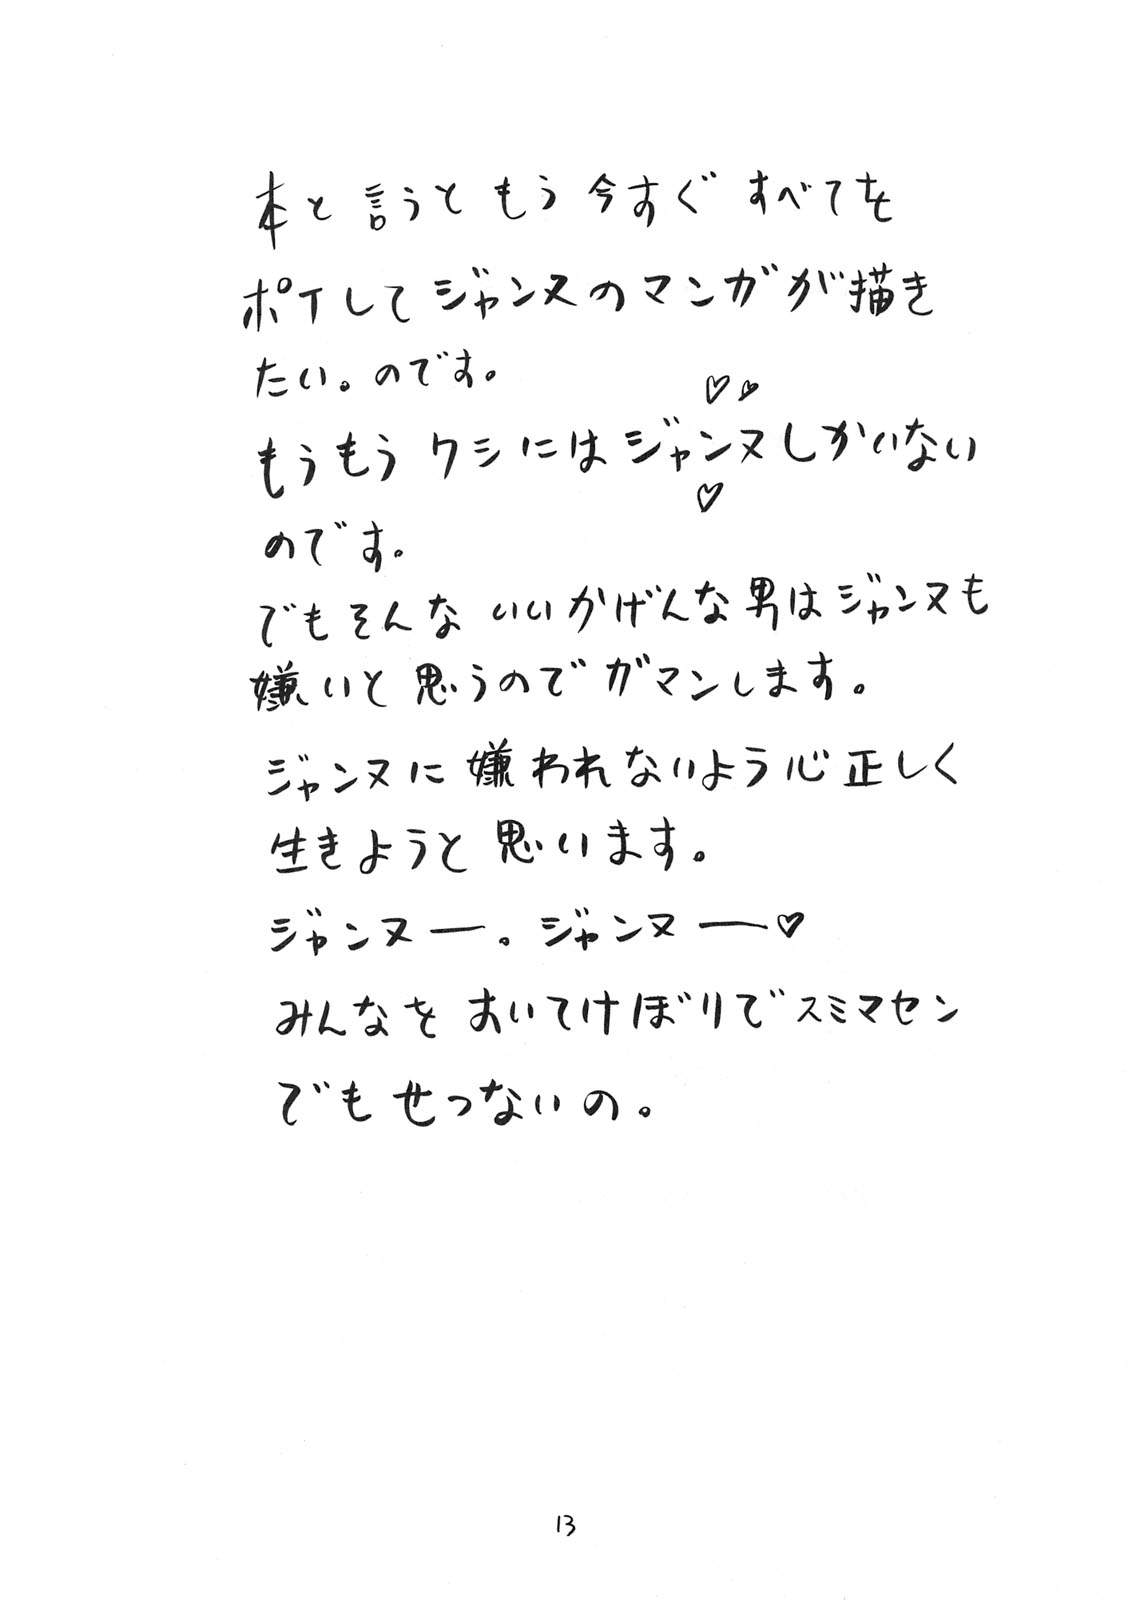 本と言うともう今すぐすべてを
ポイしてジャンヌのマンガが描き
たい。のです。
♡♡
もうもうワシにはジャンヌしかいない
♡
のです。
でもそんないいかげんな男はジャンヌも
嫌いと思うのでガマンします。
ジャンヌに嫌われないよう心正しく
生きようと思います。
ジャンヌー。ジャンヌー♡
みんなをおいてけぼりでスミマセン
でもせつないの。
13